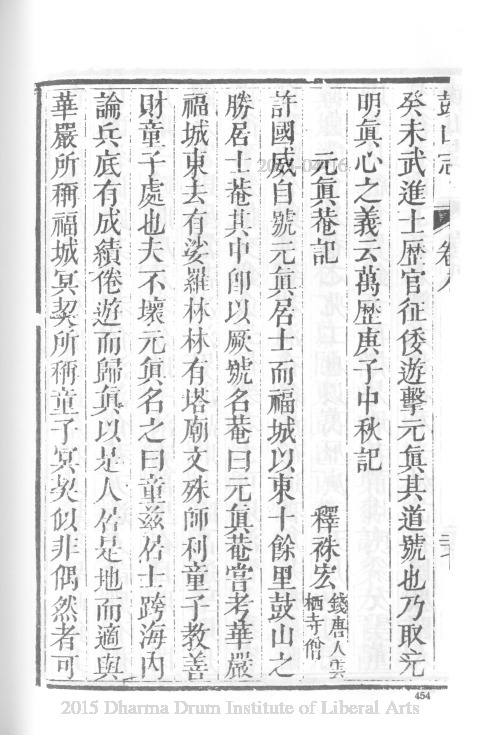 鼓山志 卷八
癸未武進士歷官征倭遊擊元眞其道號也乃取元
明眞心之義云萬歷庚子中秋記
元眞菴記 釋袾宏 錢唐人雲栖寺僧
許國威自號元眞居士而福城以東十餘里鼓山之
勝居士菴其中卽以厥號名菴曰元眞菴嘗考華嚴
福城東去有娑羅林林有塔廟文殊師利童子教善
財童子處也夫不壞元眞名之曰童茲居士跨海內
論兵底有成績倦遊而歸眞以是人居是地而適與
華嚴所稱福城冥契所稱童子冥契似非偶然者可
454
2015 Dharma Drum Institute of Liberal Arts